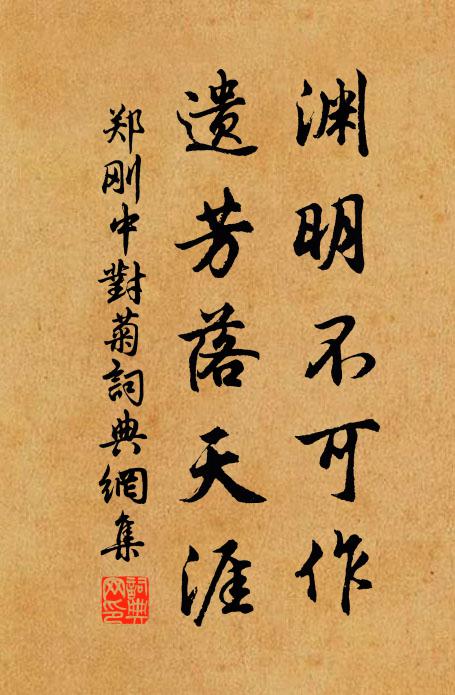 渊明不可作
遗芳落天涯
郑刚中對菊詞典網集
詞典网印